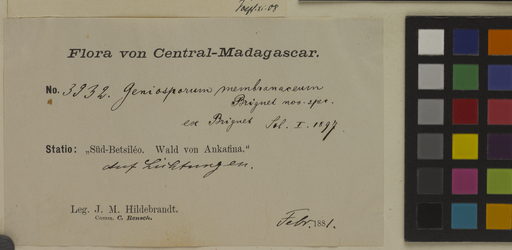 Flora von Central-Madagascar.
No. 3932. Geniosporum membranaceum
Briquet nov. spec.
ex Briquet Sol. I. 1897.
Statio: „Süd-Betsiléo. Wald von Ankafina."
auf Lichtungen.
Leg. J. M. Hildebrandt.
Comm. C. Rensch.
Febr. 1881.